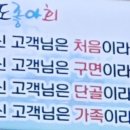 도좋아회
신 고객님은 처음이라
신 고객님은 구면이라
신 고객님은 단골이라
신 고객님은 가족이라